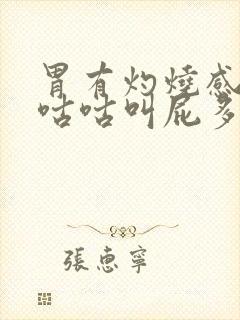 胃有灼燒感
咕咕叫屁多
張惠寧